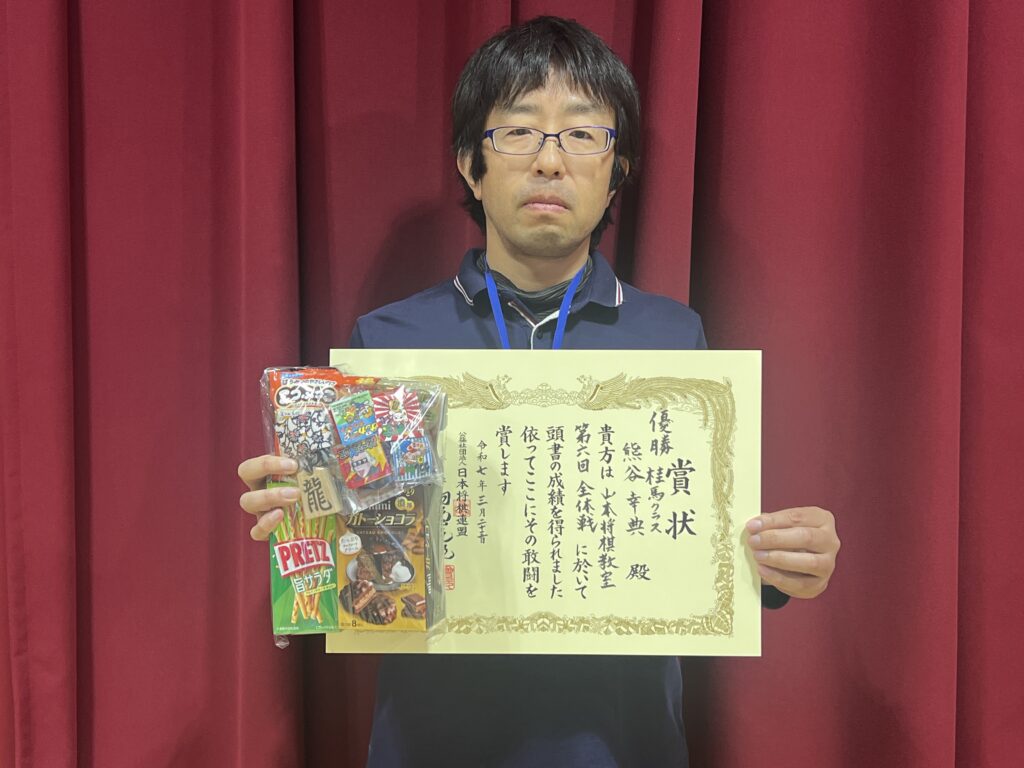 賞状
優勝 桂馬クラス
熊谷幸典 殿
貴方は 山本将棋教室
第六回 全体戦 に於いて
頭書の成績を得られました
依ってここにその敢闘を
賞します
令和七年三月二十日
公益社団法人日本将棋連盟
龍
PRETZ
旨サラダ
mini
ガトーショコラ